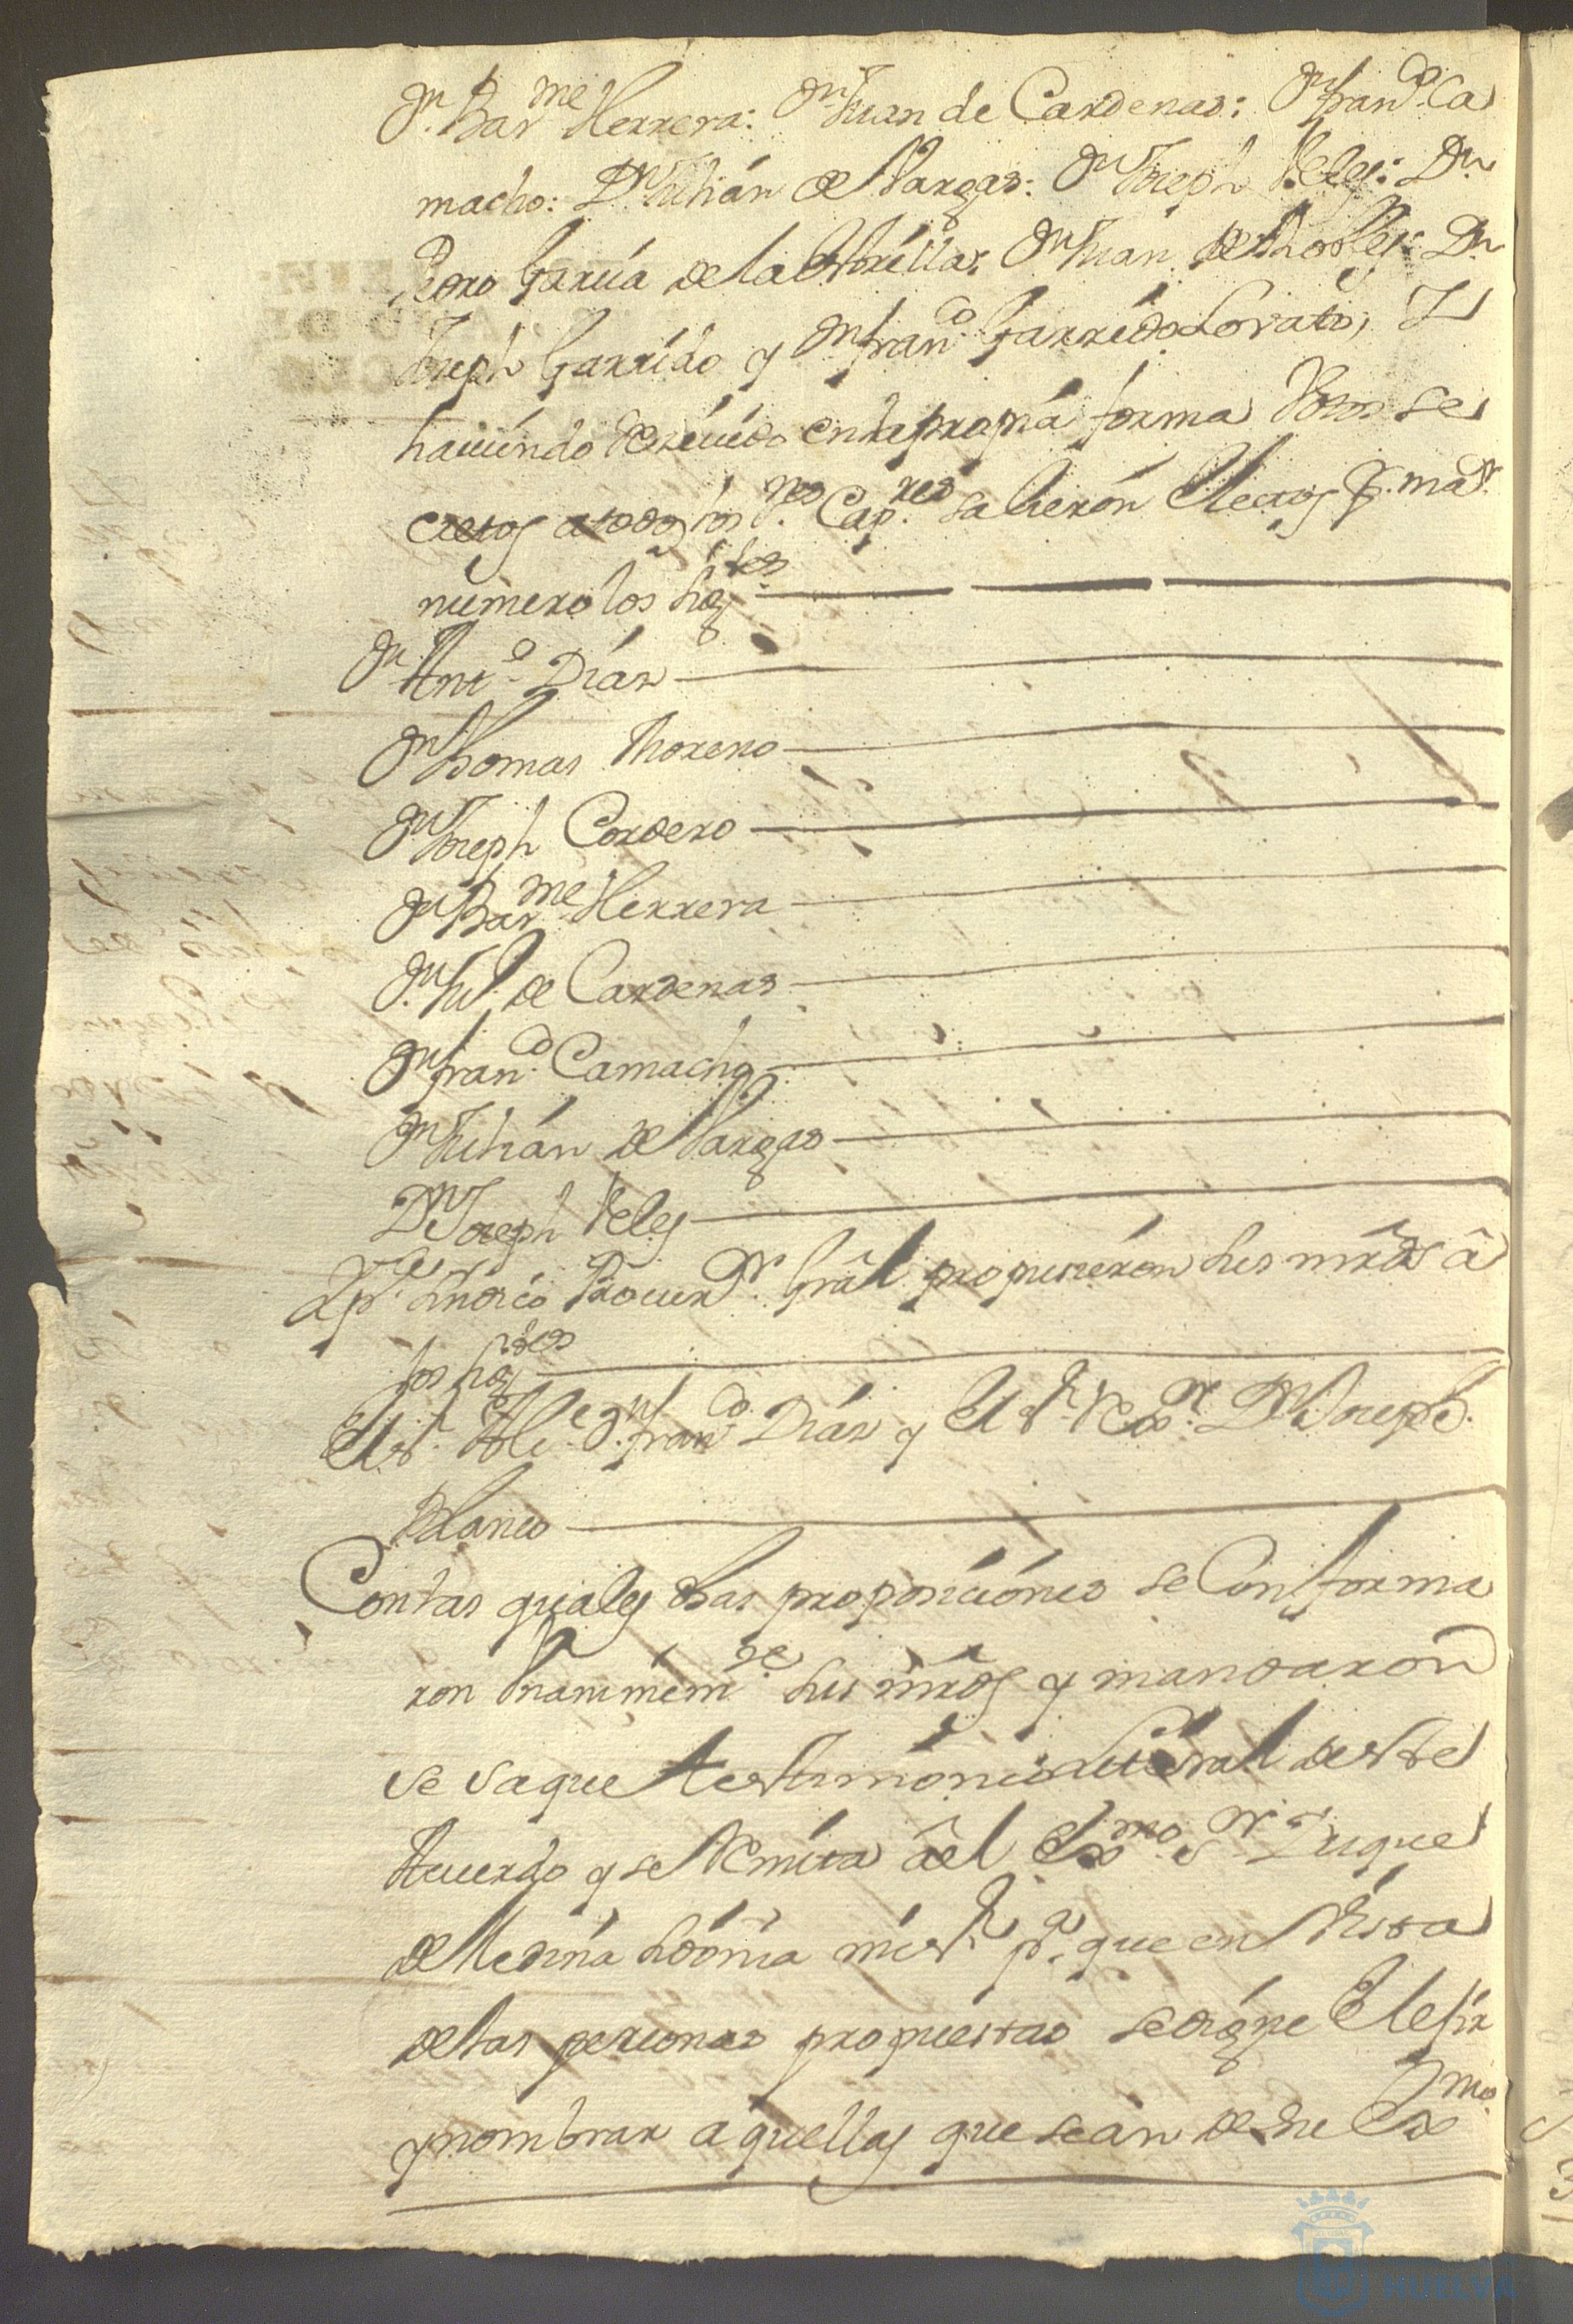 Dn. Barme Herrera: Dn Juan de Cardenas: Dn Franco. Ca
macho: Dn Julián de Vargas: Dn Joseph Velez: Dn
Pedro García de la Estrella: Dn Juan de Robles: Dn
Joseph Garrido y Dn Franco. Garrido Lovato; Y
haviendo Recivido en la propia forma Votos se
cretos a todos los Sres. Capres. salieron Electos Pr. mar.
numero los sigtes.
Dn. Anto. Días
Dn Thomas Moreno
Dn Joseph Cordero
Dn Barme Herrera
Dn. Jun. de Cardenas
Dn Franco. Camacho
Dn Julián de Vargas
Dn Joseph Velez
Pa. Síndico Procurdr. Grãl propusieron sus mrds â
los sigtes
El Sr. Alce. Dn. Franco. Días y El Sr. Rexor. Dn Joseph
Blanco
Con las quales dhas proposiciones se Conforma
ron Vnanimemte. sus mrds y mandaron
se saque testimonio Literal deste
Acuerdo y se Remita âel Exmo. Sr. Duque
de Medina Sidonia mi Sr. pa. que en Vista
de las personas propuestas se digne Elejir
y nombrar aquellas que sean de su Exma.
HUELVA